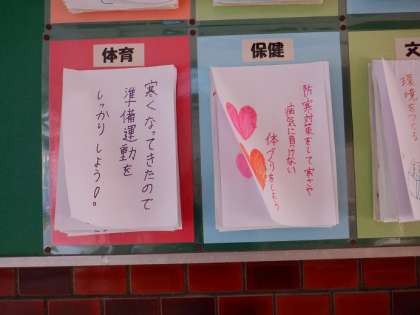 体育
寒くなってきたので
準備運動を
しっかりしよう!!
保健
防寒対策をして寒さや
病気に負けない
体づくりをしよう
文
環境をつくる